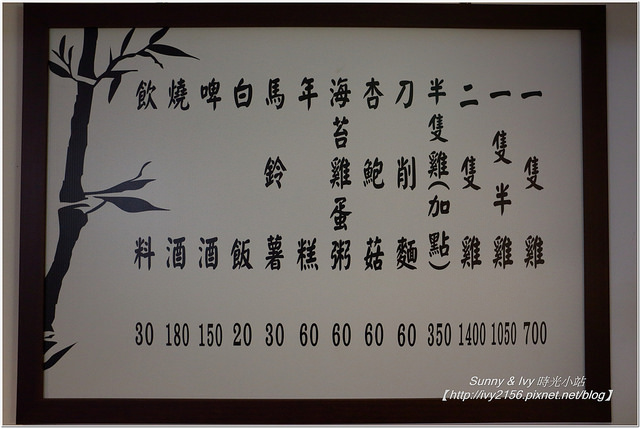 一隻雞 700
一隻半雞 1050
二隻雞 1400
半隻雞(加點) 350
刀削麵 60
杏鮑菇 60
海苔雞蛋粥 60
年糕 60
馬鈴薯 30
白飯 20
啤酒 150
燒酒 180
飲料 30
Sunny & Ivy 時光小站
【http://ivy2156.pixnet.net/blog】